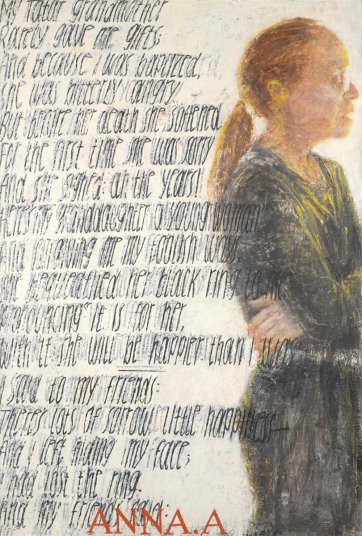 My Tatar grandmother
Rarely gave me gifts;
And because I was baptized,
She was bitterly angry.
But before her death she softened
For the first time she was sorry
And she sighed: Oh the years!
Here's my granddaughter a young woman
And forgiving me my foolish ways
She bequeathed her black ring to me
Pronouncing it is for her,
With it she will be happier than I was
I said to my friends:
There's lots of sorrow, little happiness—
And I left hiding my face;
I had lost the ring.
And my friends said:
ANNA.A